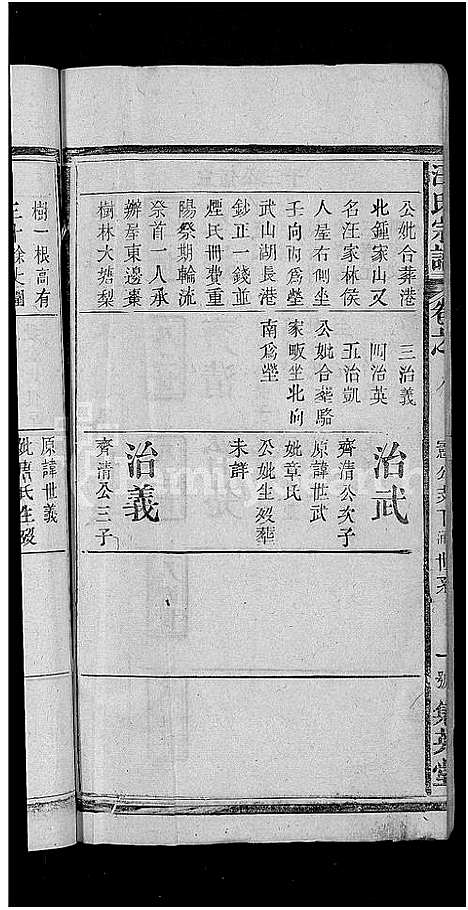 汪氏宗譜 卷之八 一號 集英堂
公妣合葬港
北鍾家山又
名汪家林侯
人屋右側坐
壬向丙為塋
武山湖長港
鈔正一錢並
煙民冊費重
陽祭期輪流
祭首一人承
辦屋東邊棗
樹林大塘梨
三治義
四治英
五治凱
公妣合葬駱
家畈坐北向
南為塋
治武
齊清公次子
原諱世武
妣章氏
公妣生歿葬
未詳
治義
齊清公三子
樹一根高有
三十餘丈圍
原諱世義
氏生歿